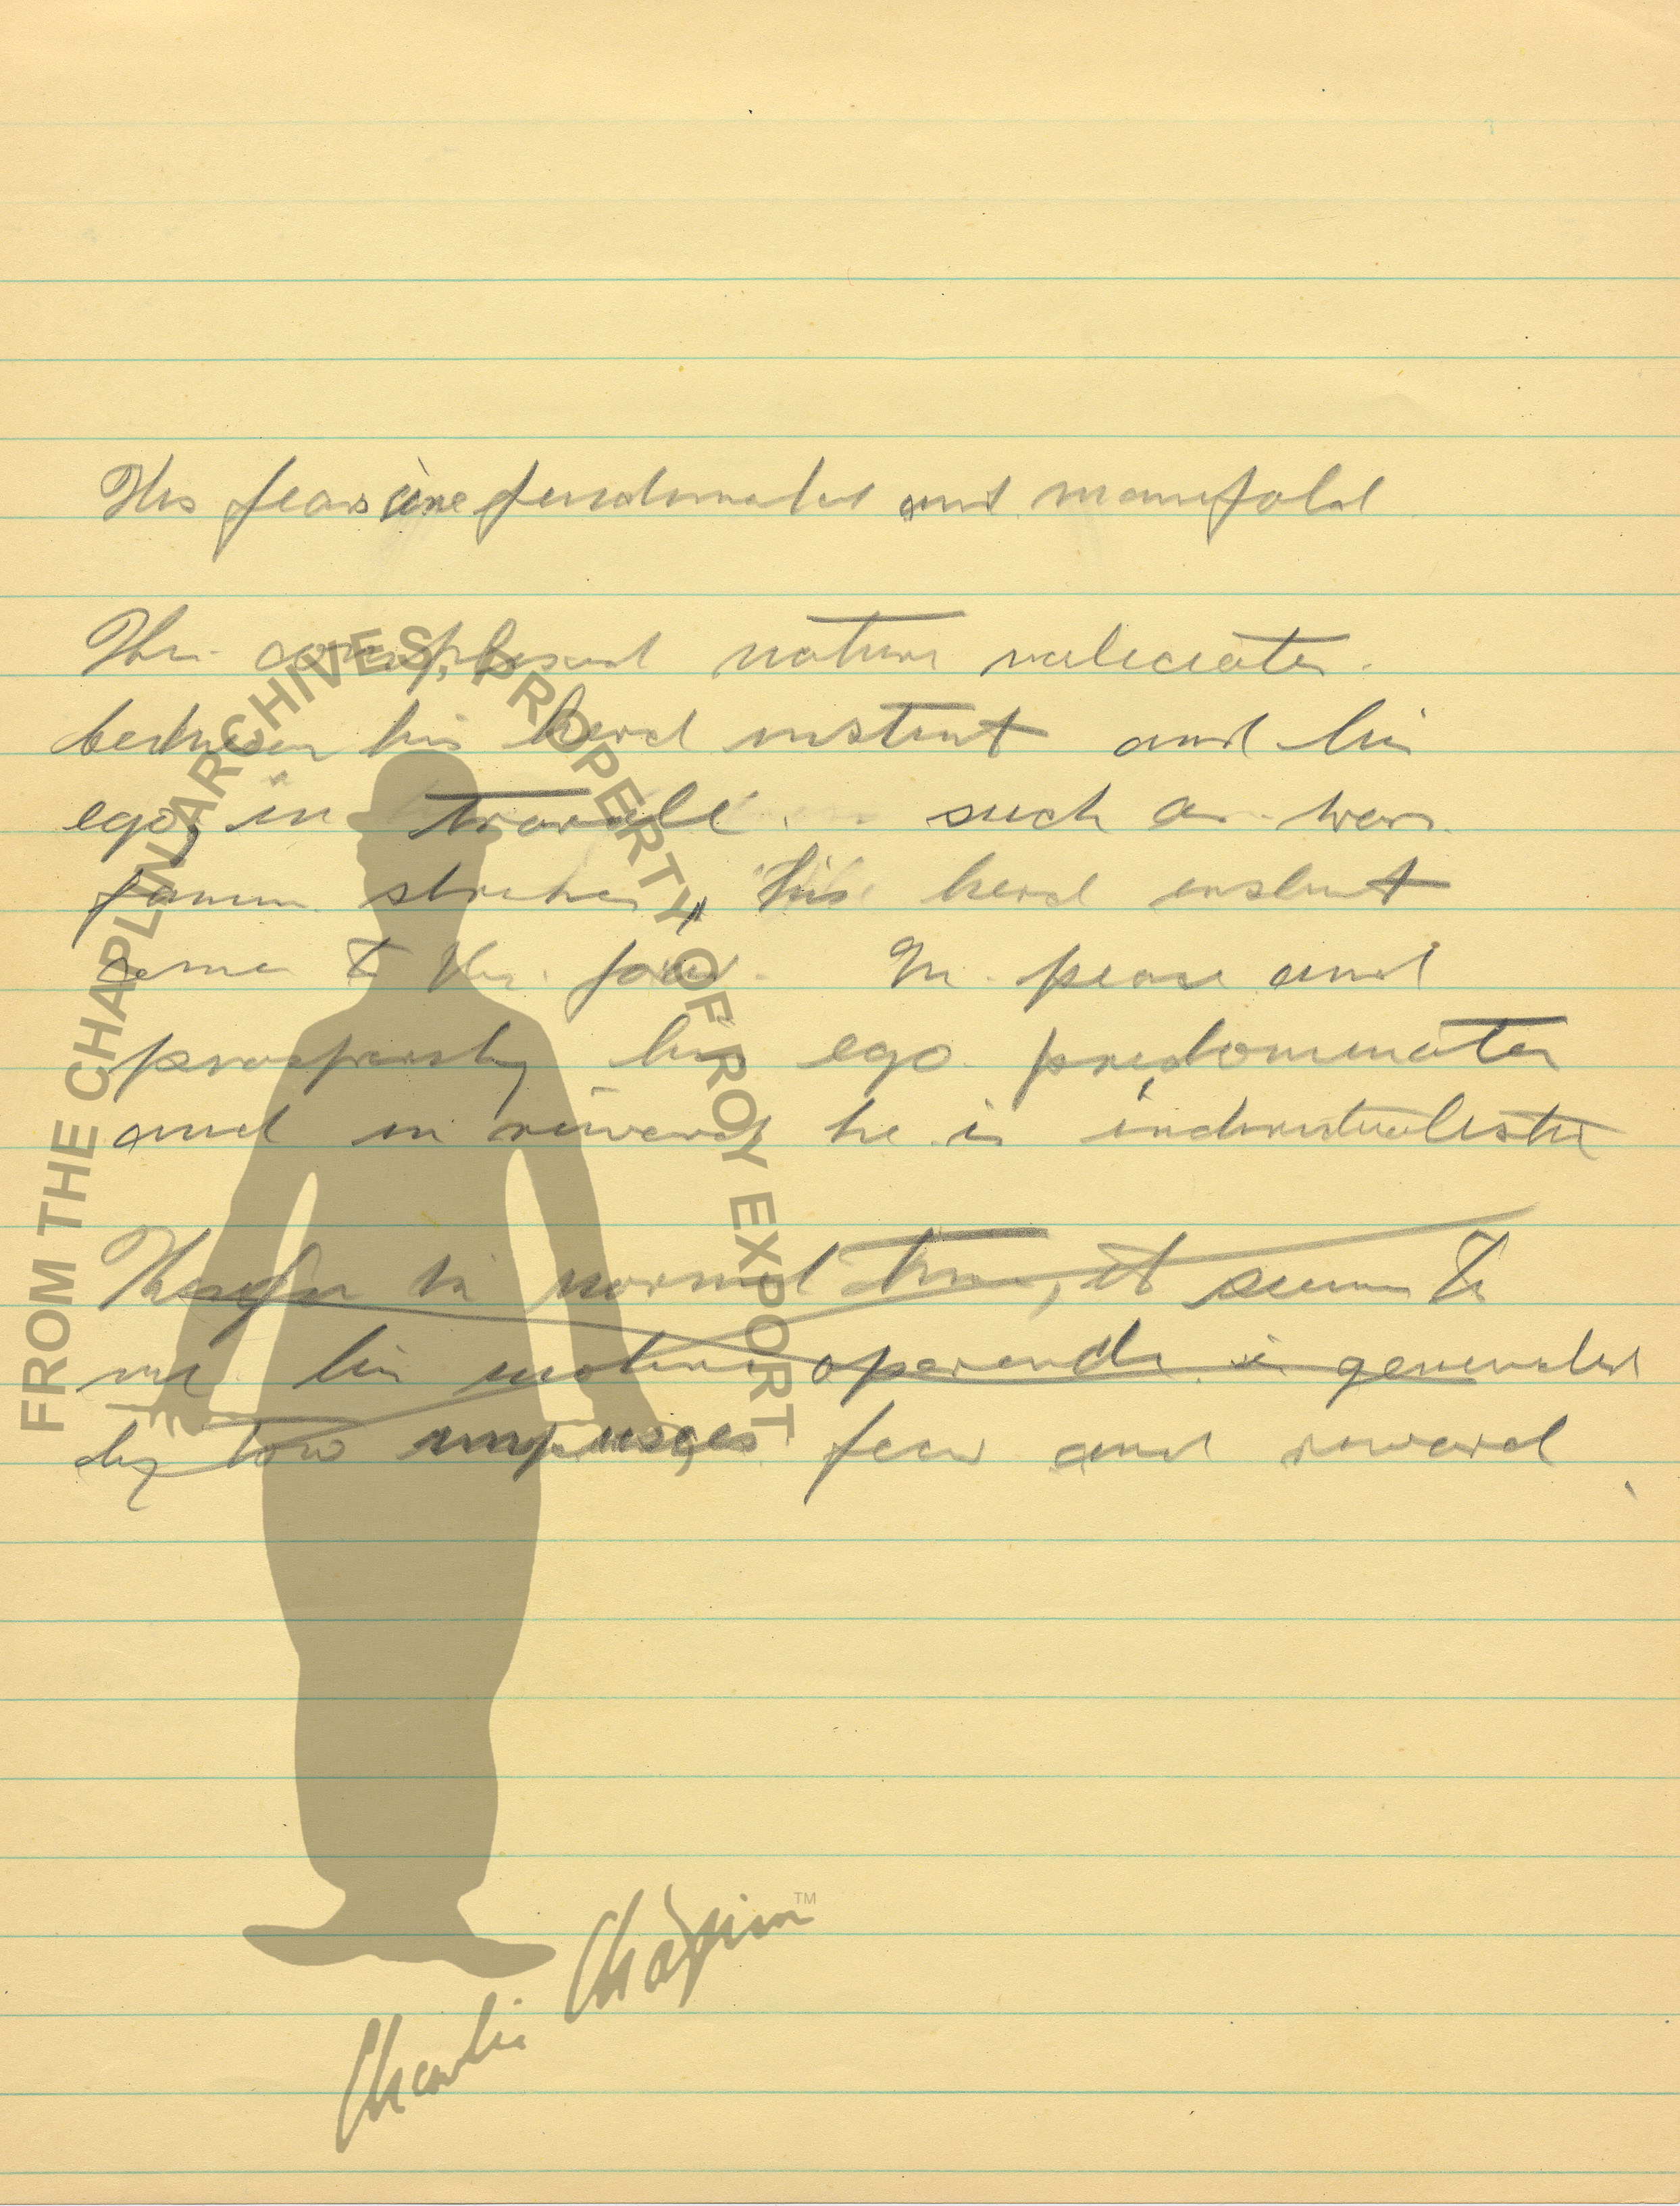 His fears are fundamental and manifold
The complexed nature
between his herd instinct and his
ego, in travail such as war
famine strikes, his herd instinct
come to the fore. In peace and
prosperity his ego predominates
and in reward he is individualistic
Therefore in normal times, it seems to
me his operandi is generated
by two impulses fear and reward
FROM THE CHAPLIN ARCHIVES, PROPERTY OF ROY EXPORT
Charlie Chaplin TM